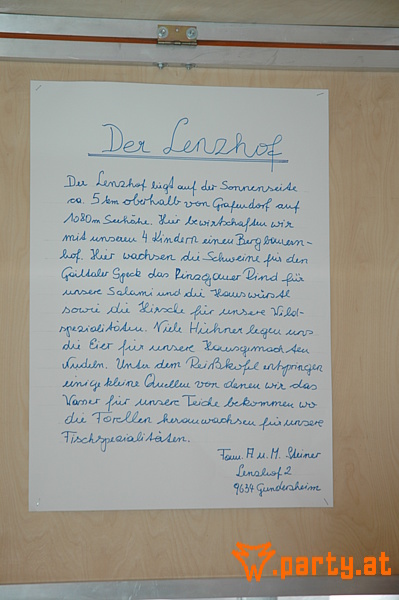 Der Lenzhof
Der Lenzhof liegt auf der Sonnenseite
ca. 5 km oberhalb von Grafendorf auf
1080m Seehöhe. Hier bewirtschaften wir
mit unseren 4 Kindern einen Bergbauern-
hof. Hier wachsen die Schweine für den
Gailtaler Speck das Pinzgauer Rind für
unsere Salami und die Hauswürstl
sowie die Hirsche für unsere Wild-
spezialitäten. Viele Hühner legen uns
die Eier für unsere Hausgemachten
Nudeln. Unter dem Reißkofel entspringen
einige kleine Quellen von denen wir das
Wasser für unsere Teiche bekommen wo
die Forellen heranwachsen für unsere
Fischspezialitäten.
Fam. A u. M. Steiner
Lenzhof 2
9634 Gundersheim
.party.at